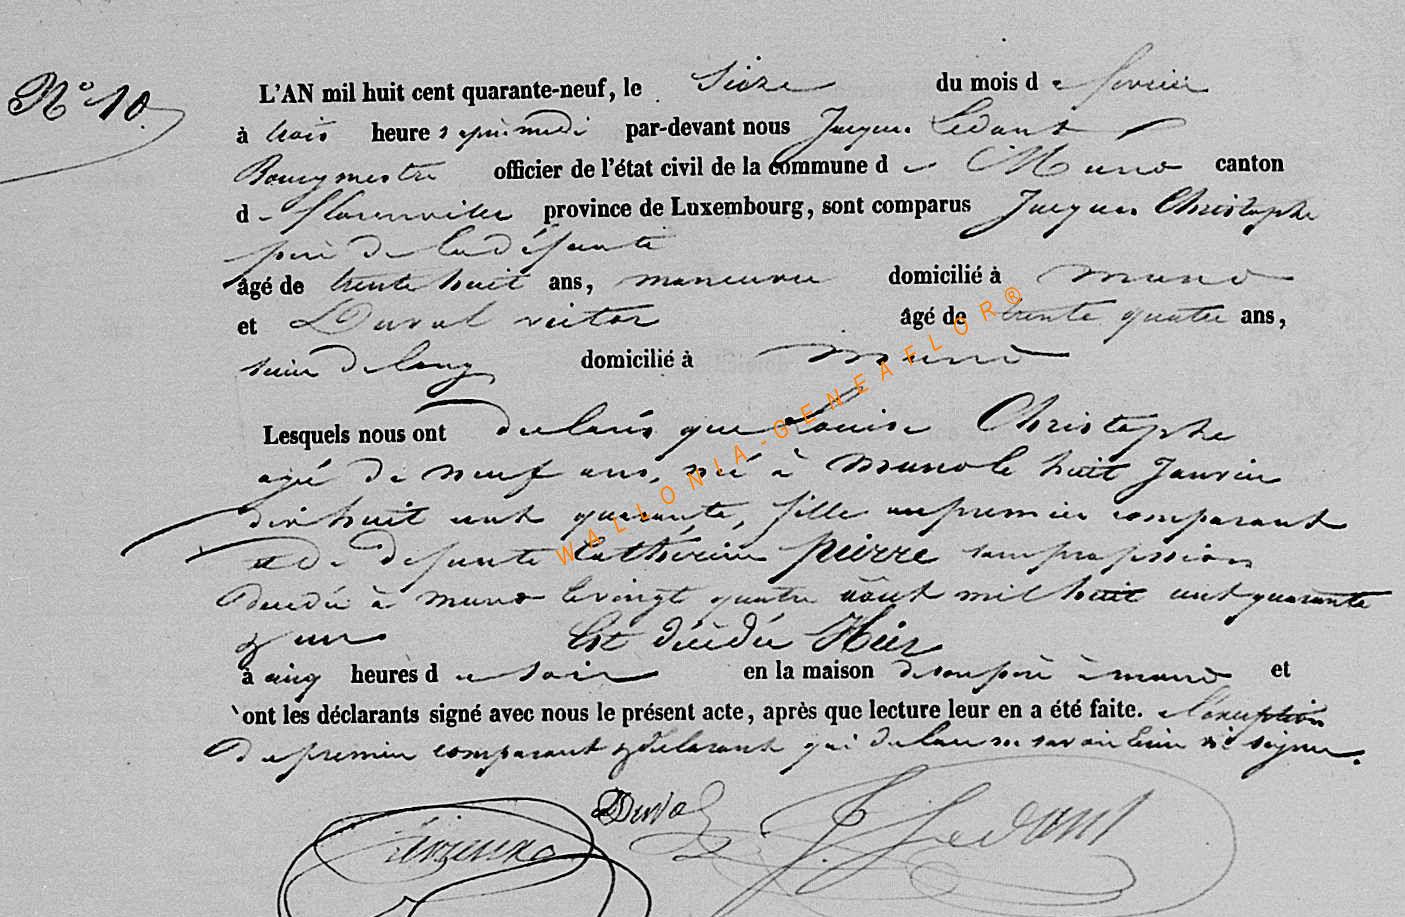 N° 10.
L'AN mil huit cent quarante-neuf, le Seize du mois de fevrier
à trois heures après midi par-devant nous Jacques Ledant
Bourgmestre officier de l'état civil de la commune de Muno canton
de florenville province de Luxembourg, sont comparus Jacques Christophe
père de la défunte
âgé de trente huit ans, manœuvre domicilié à muno
et Duval victor âgé de trente quatre ans,
scieur de long domicilié à muno
Lesquels nous ont déclaré que Louise Christophe
agée de neuf ans, née à Muno le huit Janvier
dix huit cent quarante, fille au premier comparant
et de defunte Cathérine pierre sans profession
decedée à muno le vingt quatre août mil huit cent quarante
& un Est décédée Hier
à cinq heures du soir en la maison de son père à muno et
ont les déclarants signé avec nous le présent acte, après que lecture leur en a été faite. à l'exception
du premier comparant & déclarant qui declare ne savoir Ecrire ni signer.
Duval
J Ledant
WALLONIA-GENEAFLOR®